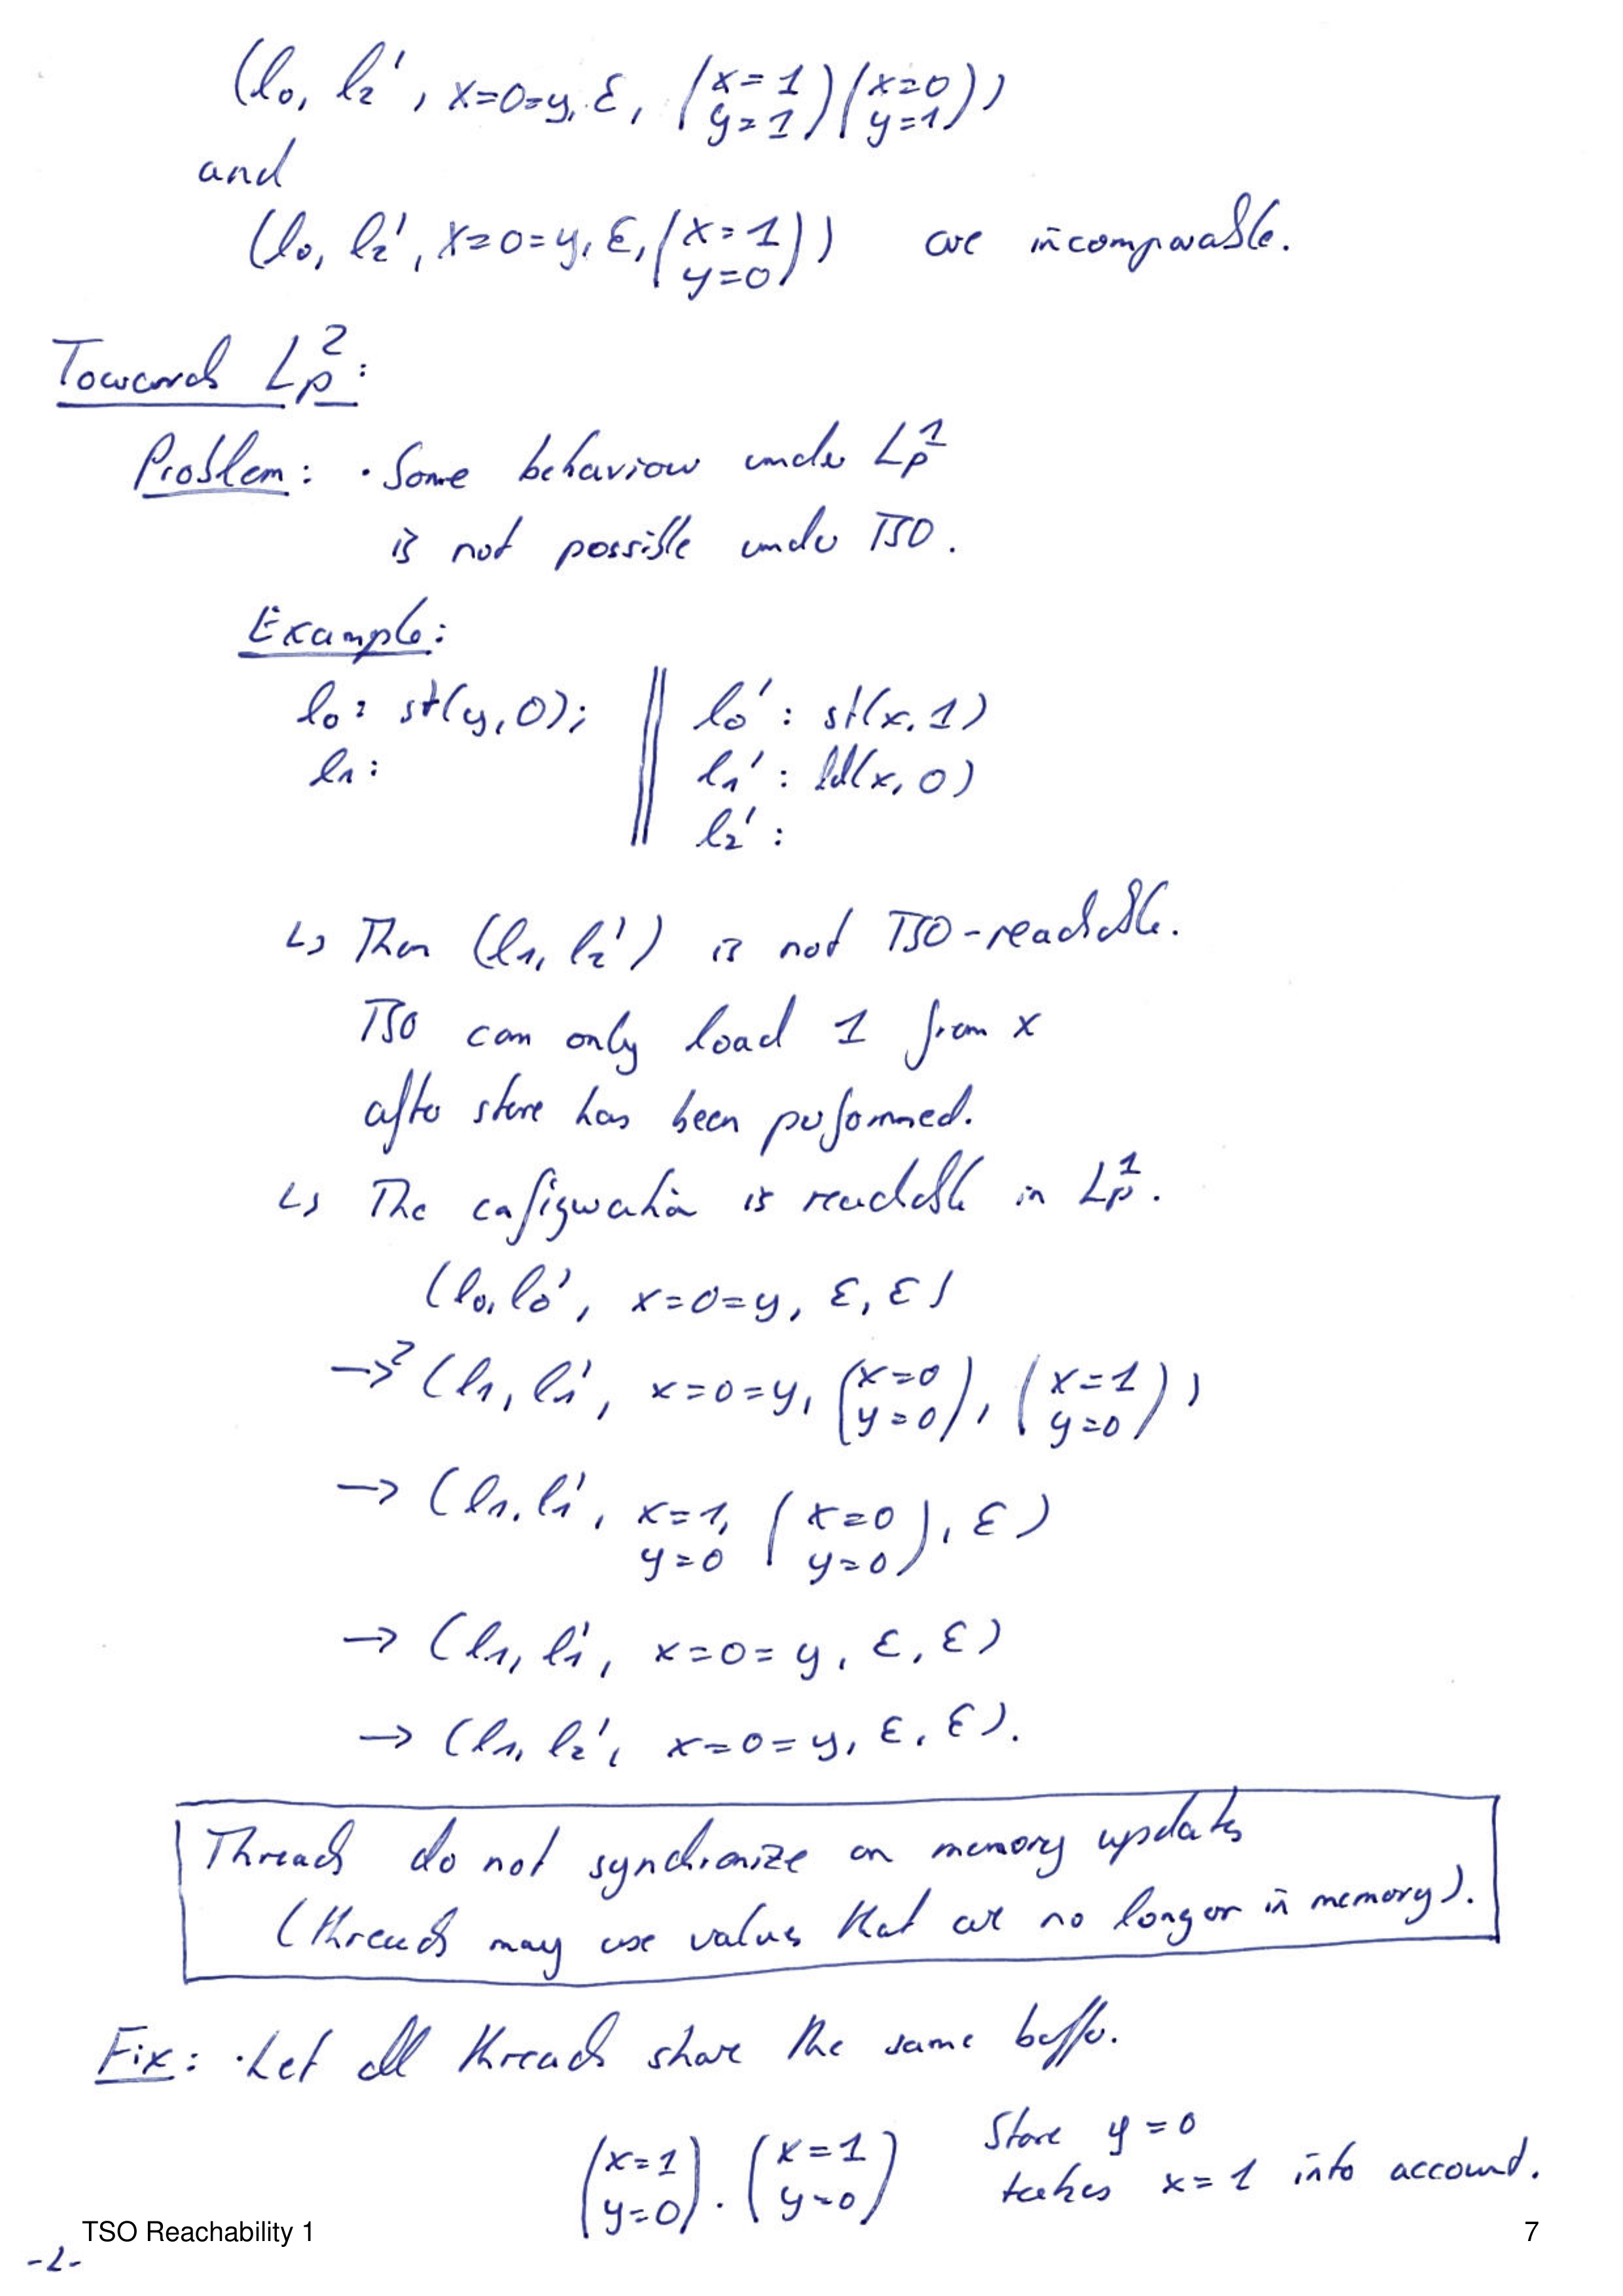 (l₀, l₂', x=0=y, ε, (x=1 y=1)(x=0 y=1))
and
(l₀, l₂', x=0=y, ε, (x=1 y=0)) are incomparable.
Towards Lp²:
Problem: · Some behaviour under Lp¹
is not possible under TSO.
Example:
l₀: st(y,0); || l₀': st(x,1)
l₁: || l₁': ld(x,0)
l₂':
↳ Then (l₁, l₂') is not TSO-reachable.
TSO can only load 1 from x
after store has been performed.
↳ The configuration is reachable in Lp¹.
(l₀, l₀', x=0=y, ε, ε)
→² (l₁, l₁', x=0=y, (x=0 y=0), (x=1 y=0))
→ (l₁, l₁', x=1, y=0 (x=0 y=0), ε)
→ (l₁, l₁', x=0=y, ε, ε)
→ (l₁, l₂', x=0=y, ε, ε).
Threads do not synchronize on memory updates
(threads may use values that are no longer in memory).
Fix: · Let all threads share the same buffer.
(x=1 y=0) · (x=1 y=0) Store y=0
takes x=1 into account.
TSO Reachability 1 7
-2-